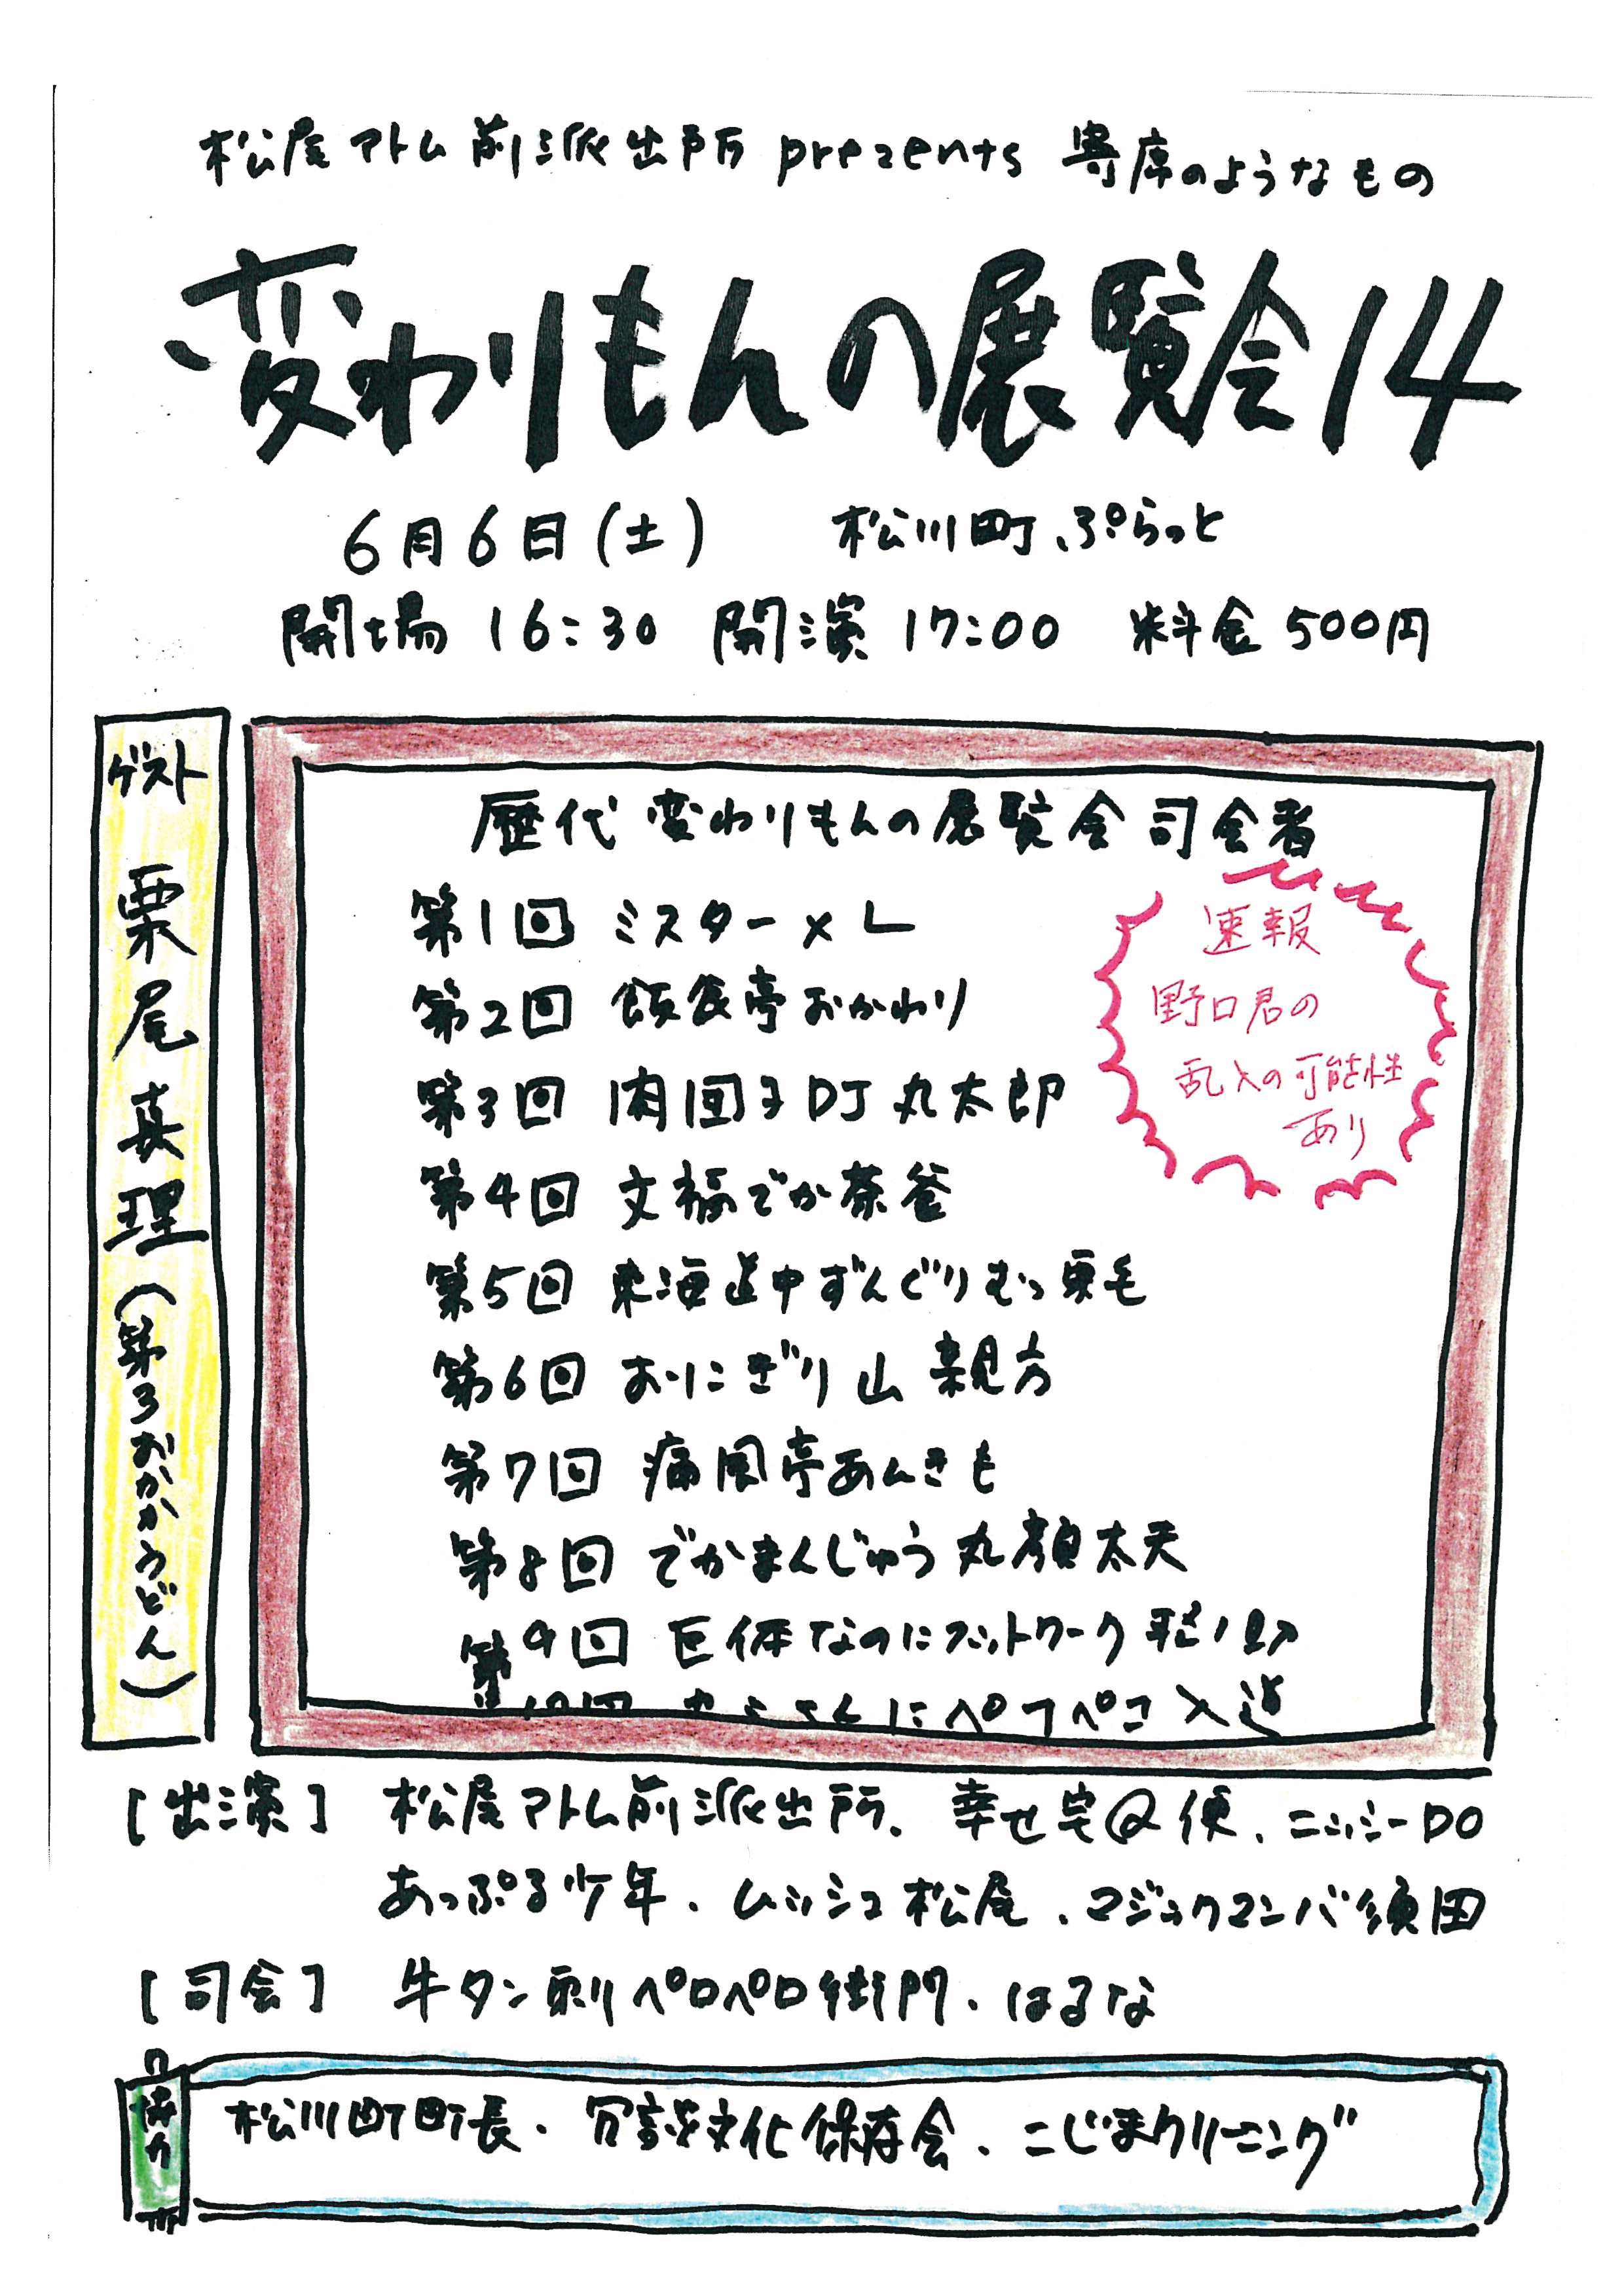 松尾アトム前派出所 prezents 寄席のようなもの
変わりもんの展覧会14
6月6日(土) 松川町、ぷらっと
開場 16:30 開演 17:00 料金 500円
ゲスト 栗尾真理(第3おかかうどん)
歴代 変わりもんの展覧会 司会者
第1回 ミスター×L
第2回 飯食亭おかわり
第3回 肉団子DJ丸太郎
第4回 文福でか茶釜
第5回 東海道中ずんぐりむっ栗毛
第6回 おにぎり山 親方
第7回 痛風亭あんきも
第8回 でかまんじゅう丸顔太夫
第9回 巨体なのにフットワーク軽ノ助
第10回 カミさんにペコペコ入道
速報
野口君の
乱入の可能性
あり
[出演] 松尾アトム前派出所、幸せ宅Q便、ニッシーDO
あっぷる少年、ムッシュ松尾、マジックマンバ須田
[司会] 牛タン刺ペロペロ衛門、はるな
協力
松川町町長、冗談文化保存会、こじまクリーニング